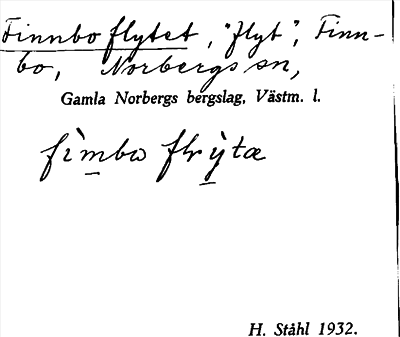 Finnboflytet, "flyt", Finn-
bo, Norbergs sn,
Gamla Norbergs bergslag, Västm. l.
fìmbo flrỳtæ
H. Ståhl 1932.